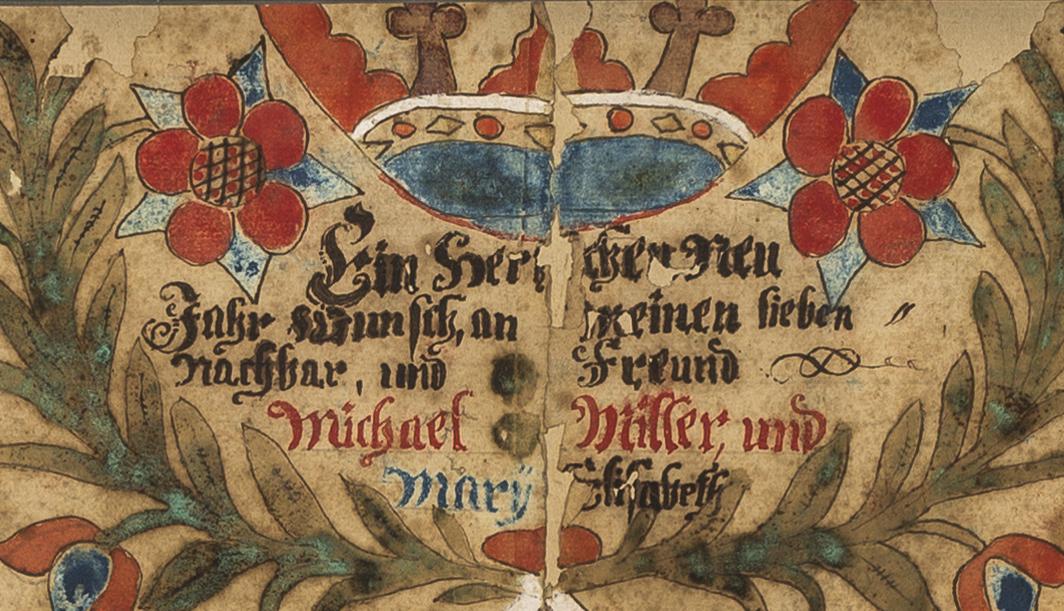 Ein Hertz cher Neu
Jahr Wunsch, an meinen lieben
Nachbar, und Freund
Michael Miller, und
Marÿ Elisabeth